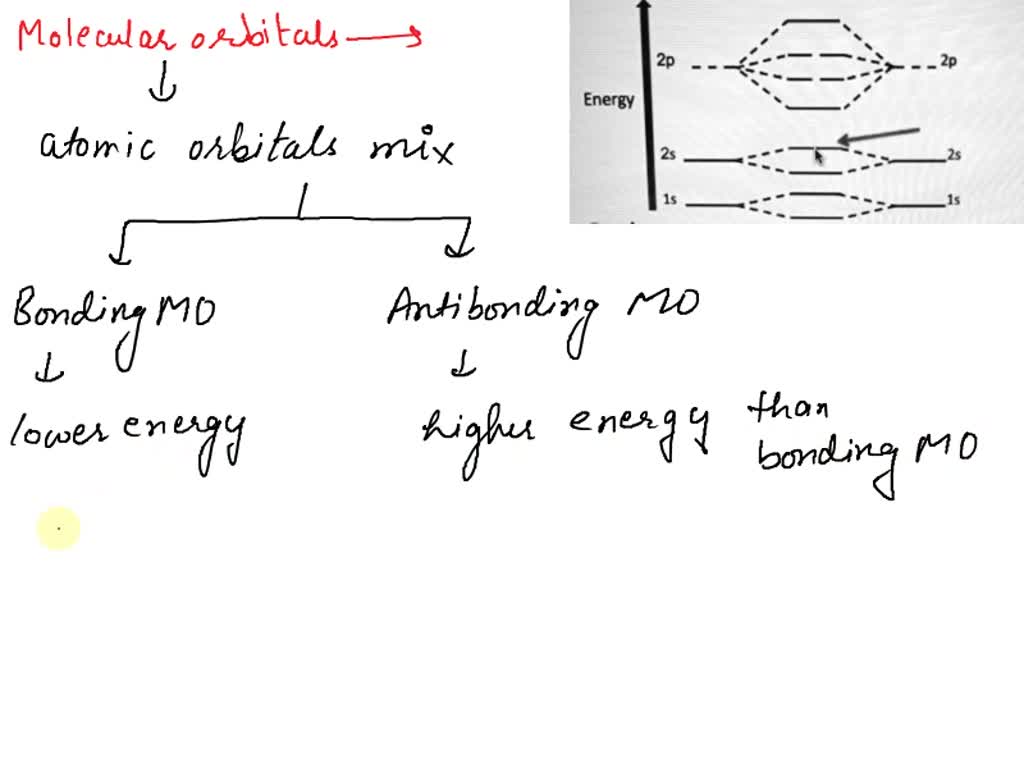 Molecular orbitals
atomic orbitals mix
Bonding MO
Antibonding MO
lower energy
higher energy than
bonding MO
2p 2p
Energy
2s 2s
1s 1s